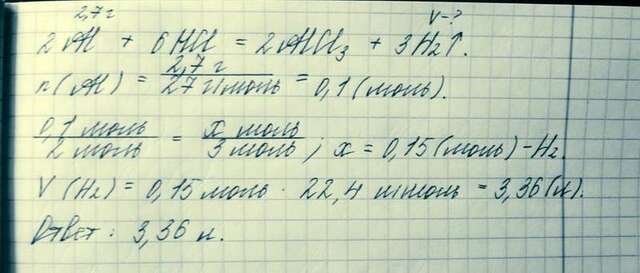 2,7 г V-?
2Al + 6HCl = 2AlCl₃ + 3H₂↑.
n(Al) = 2,7 г / 27 г/моль = 0,1 (моль).
0,1 моль / 2 моль = x моль / 3 моль ; x = 0,15 (моль) - H₂.
V (H₂) = 0,15 моль · 22,4 л/моль = 3,36 (л).
Ответ: 3,36 л.